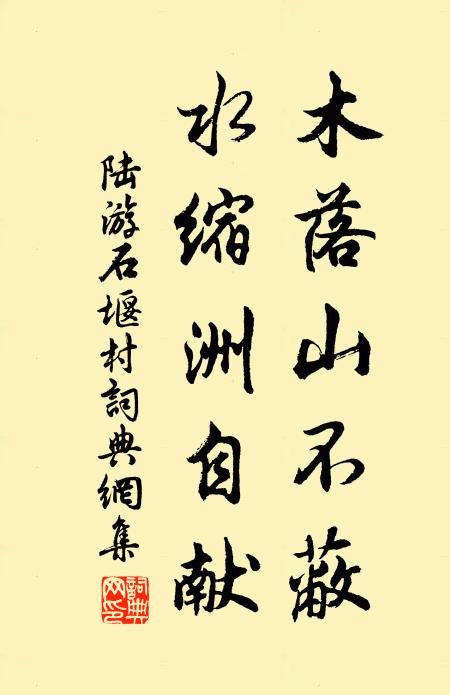 木落山不蔽
水缩洲自献
陆游石堰村詞典網集
詞典网印